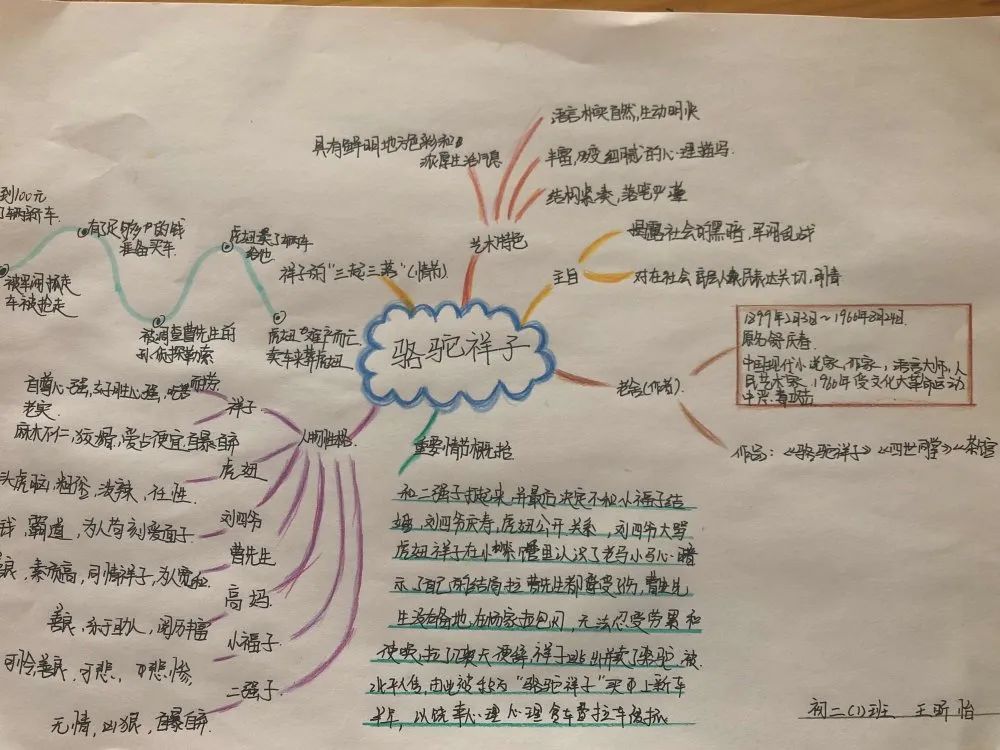 语言朴实自然,生动明快
具有鲜明地方色彩和
浓厚生活气息
丰富,多变,细腻的心理描写
结构紧凑,落笔严谨
艺术特色
揭露社会的黑暗,军阀乱战
主旨
对在社会底层人民表达关切,同情
到100元
了辆新车
有了足够少的钱
准备买车
虎妞卖了辆车
给他
祥子的"三起三落"(情节)
被军阀抓走
车被抢走
被调查曹先生的
孙侦探勒索
虎妞因难产而亡
卖车来葬虎妞
骆驼祥子
1899年2月3日~1966年8月24日
原名舒庆春
中国现代小说家,作家,语言大师,人
民艺术家,1966年受文化大革命运动
中
老舍(作者)
作品:《骆驼祥子》《四世同堂》《茶馆
自尊心强,好胜心强,吃苦耐劳
老实
麻木不仁,狡猾,爱占便宜,自暴自弃
祥子
人物性格
重要情节概括
虎妞
头虎脑,粗俗,泼辣,任性
刘四爷
钱,霸道,为人苛刻爱面子
曹先生
良,素质高,同情祥子,为人宽和
高妈
善良,乐于助人,阅历丰富
小福子
可怜善良,可悲,悲惨
二强子
无情,凶狠,自暴自弃
和二强子打起来,并最后决定不和小福子结
婚,刘四爷庆寿,虎妞公开关系,刘四爷大骂
虎妞祥子在小茶馆里认识了老马小马心暗
示了自己的结局拉曹先生都摔受了伤,曹先生
生没有各地,在杨家拉包月,无法忍受劳累和
使唤,拉了天便辞,祥子逃出并卖了骆驼,被
人传,由此被称为"骆驼祥子"买上新车
半年,以心理心理拉车
初二(1)班 王昕怡